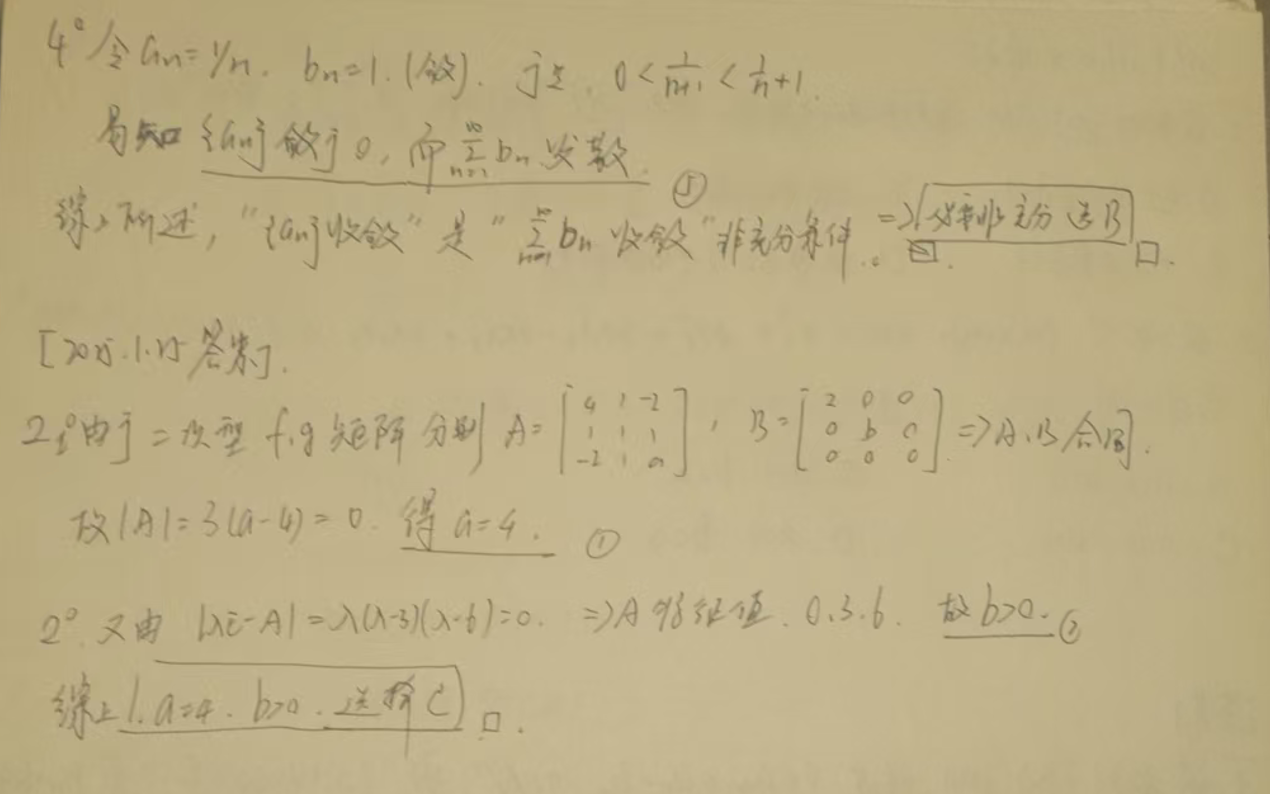 4° 令 an=1/n. bn=1. (敛). 于是, 0 < 1/(n+1) < 1/n+1.
易知 {an}敛于0, 而 ∑_{n=1}^∞ bn 发散. ⑤
综上所述, "{an}收敛" 是 "∑_{n=1}^∞ bn 收敛" 非充分条件. => 非充分 选B □.
[2025.1.15 答案].
由于二次型 f.g 矩阵分别 A=[4 1 -2; 1 1 1; -2 1 a], B=[2 0 0; 0 b 0; 0 0 0] => A.B 合同.
故|A|=3(a-4)=0. 得 a=4. ①
2°. 又由 |λE-A|=λ(λ-3)(λ-6)=0. =>A 特征值. 0.3.6. 故 b>0. ②
综上 1. a=4. b>0. 选择 C □.